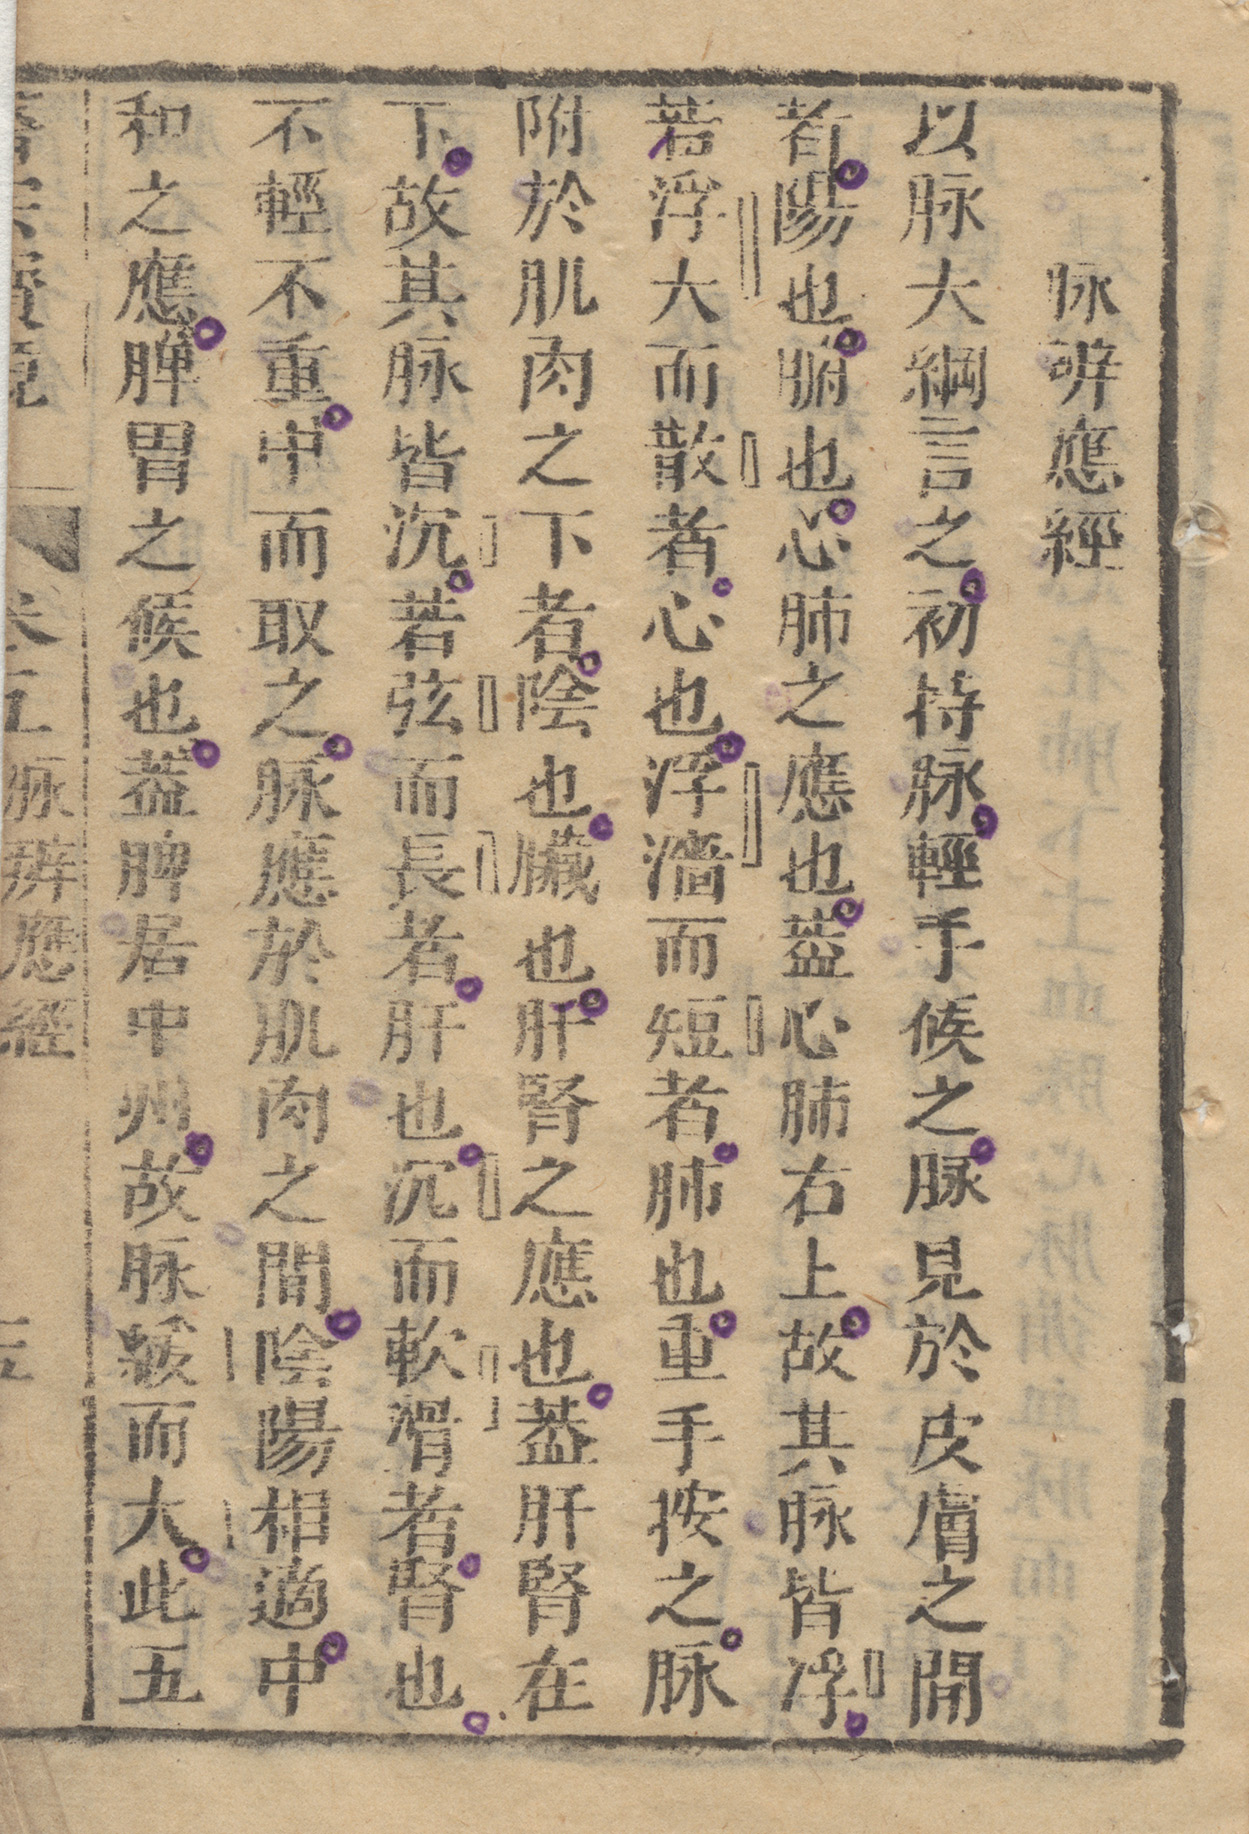 脉辨應經
以脉大綱言之初持脉輕手候之脉見於皮膚之間
者陽也腑也心肺之應也蓋心肺右上故其脉皆浮
若浮大而散者心也浮濇而短者肺也重手按之脉
附於肌肉之下者陰也臟也肝腎之應也蓋肝腎在
下故其脉皆沉若弦而長者肝也沉而軟滑者腎也
不輕不重中而取之脉應於肌肉之間陰陽相適中
和之應脾胃之候也蓋脾居中州故脉緩而大此五
卷五 脉辨應經